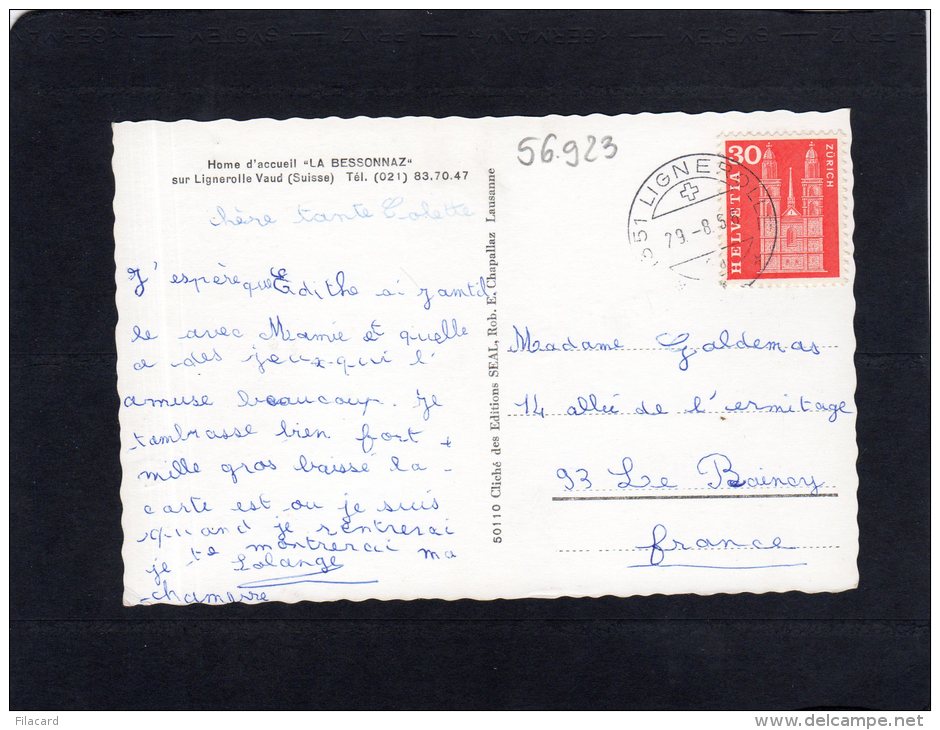 56.923
30
HELVETIA
ZÜRICH
1351 LIGNEROLLE
29.-8.
Home d'accueil "LA BESSONNAZ"
sur Lignerolle Vaud (Suisse) Tél. (021) 83.70.47
chère tante Colette
J'espère que Edithe ai jamtil
le avec Mamie et quelle
a des jeux qui l'
amuse beaucoup. Je
tambrasse bien fort +
mille gros baissé la
carte est ou je suis
quand je rentrerai
je te montrerai ma
chambre
Solange
50110 Cliché des Editions SEAL, Rob. E. Chapallaz Lausanne
Madame Galdemas
14 allée de l'ermitage
93 Le Raincy
france
Filacard
www.delcampe.net